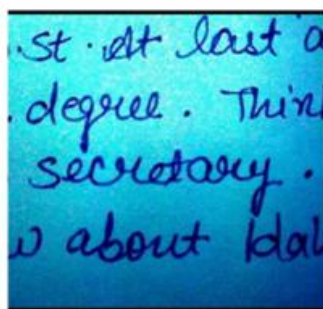 .st. At last a
. degree. Thin
secretary.
w about Idal